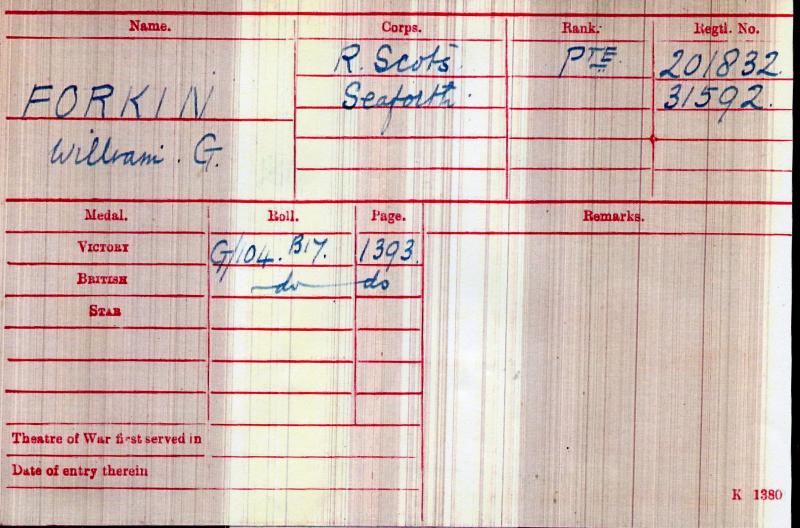 Name. Corps. Rank. Regtl. No.
R. Scots PTE 201832
FORKIN Seaforth 31592
William. G.
Medal. Roll. Page. Remarks.
VICTORY G/104. B17. 1393
BRITISH do do
STAR
Theatre of War first served in
Date of entry therein
K 1380